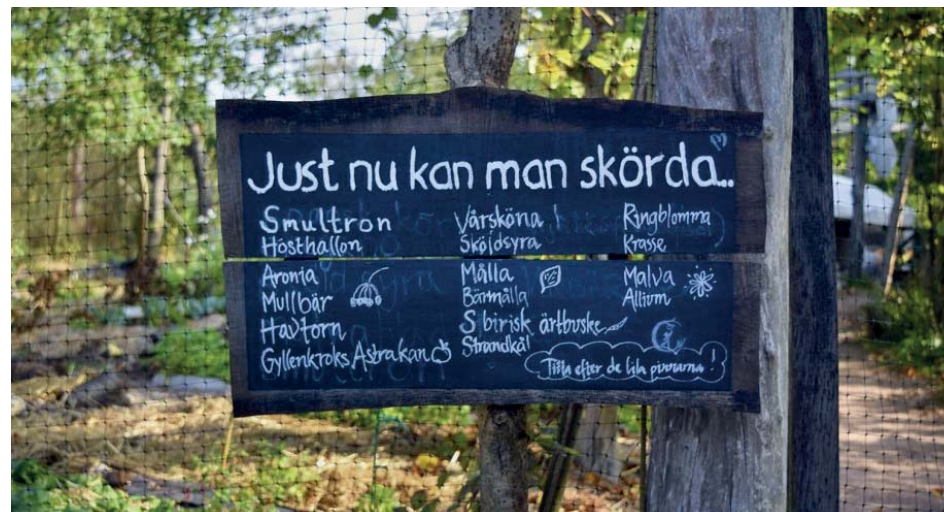 Just nu kan man skörda...
Smultron
Hösthallon
Aronia
Mullbär
Havtorn
Gyllenkroks Astrakan
Vårsköna
Sköldsyra
Målla
Bärmålla
S birisk ärtbuske
Strandkål
Ringblomma
Krasse
Malva
Allium
Titta efter de lila pinnarna!